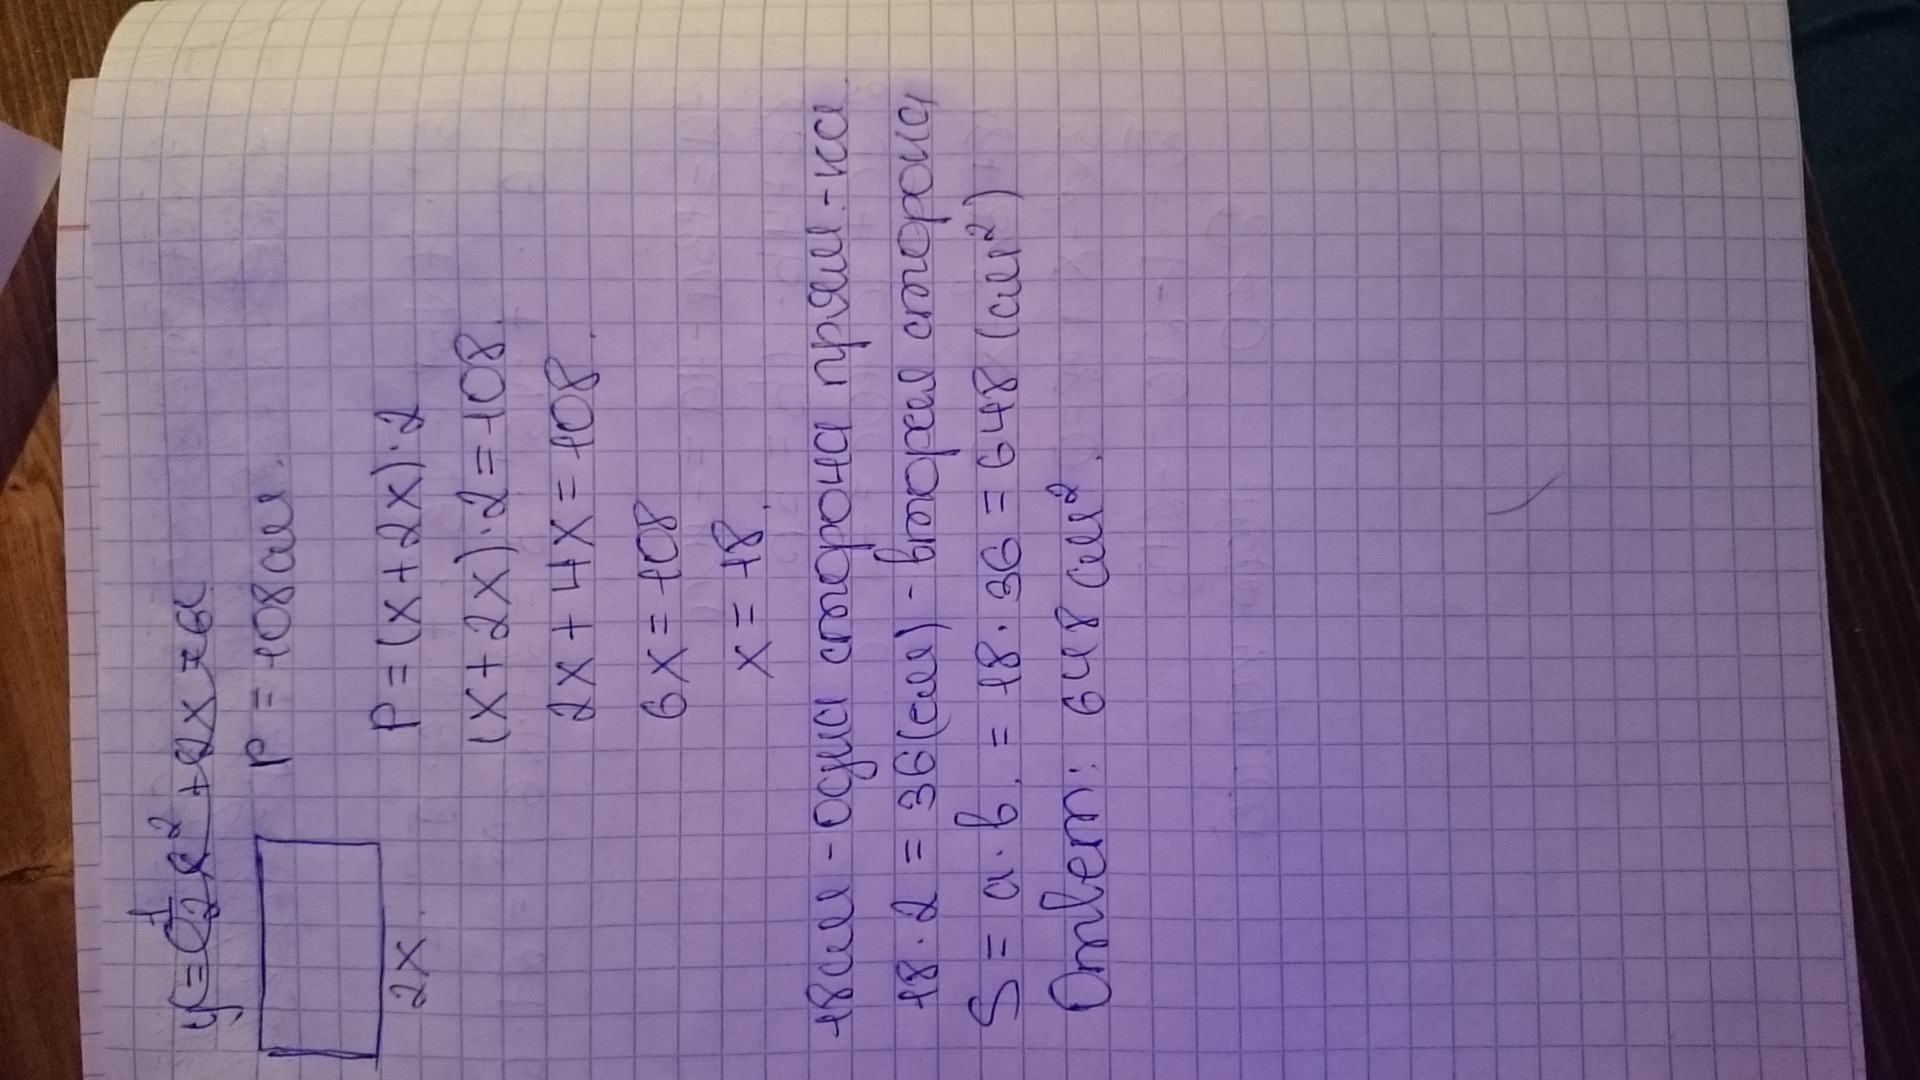 P = 108 см.
2x.
P = (x + 2x) · 2
(x + 2x) · 2 = 108.
2x + 4x = 108.
6x = 108
x = 18.
18 см - одна сторона прям.-ка.
18 · 2 = 36 (см) - вторая сторона
S = a · b. = 18 · 36 = 648 (см²)
Ответ: 648 см².